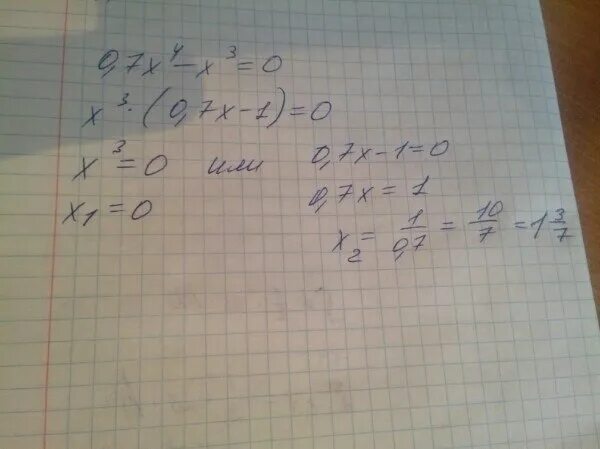 0,7x⁴ - x³ = 0
x³ · (0,7x - 1) = 0
x³ = 0 или 0,7x - 1 = 0
x₁ = 0 0,7x = 1
x₂ = 1/0,7 = 10/7 = 1 3/7